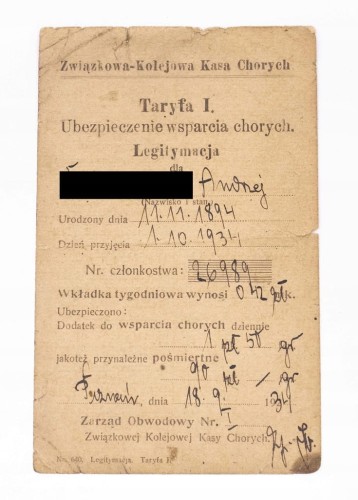 Związkowa-Kolejowa Kasa Chorych
Taryfa I.
Ubezpieczenie wsparcia chorych.
Legitymacja
dla
Andrzej
(Nazwisko i stan)
Urodzony dnia 11.11.1894
Dzień przyjęcia 1.10.1934
Nr. członkostwa: 26989
Wkładka tygodniowa wynosi 0,42
Ubezpieczono:
Dodatek do wsparcia chorych dziennie
1 zł 50 gr
jakoteż przynależne pośmiertne
90 zł — gr
Poznań, dnia 18. 9. 1934
Zarząd Obwodowy Nr. I
Związkowej Kolejowej Kasy Chorych.
Legitymacja. Taryfa I.